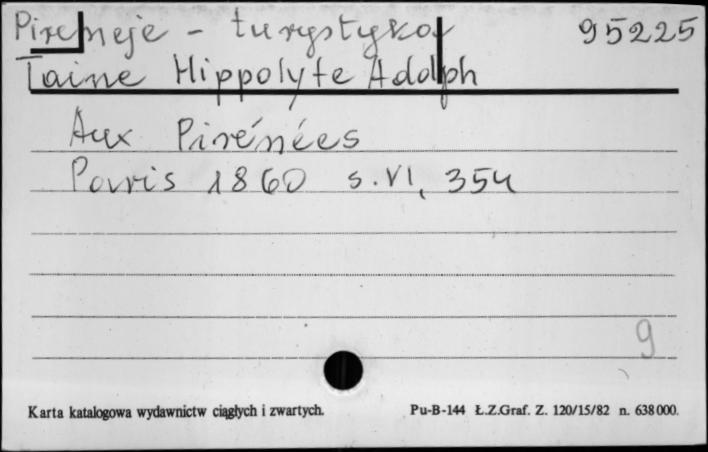 Pireneje - turystyka 95225
Taine Hippolyte Adolph
Aux Pirénées
Paris 1860 s. VI, 354
9
Karta katalogowa wydawnictw ciągłych i zwartych. Pu-B-144 Ł.Z.Graf. Z. 120/15/82 n. 638000.